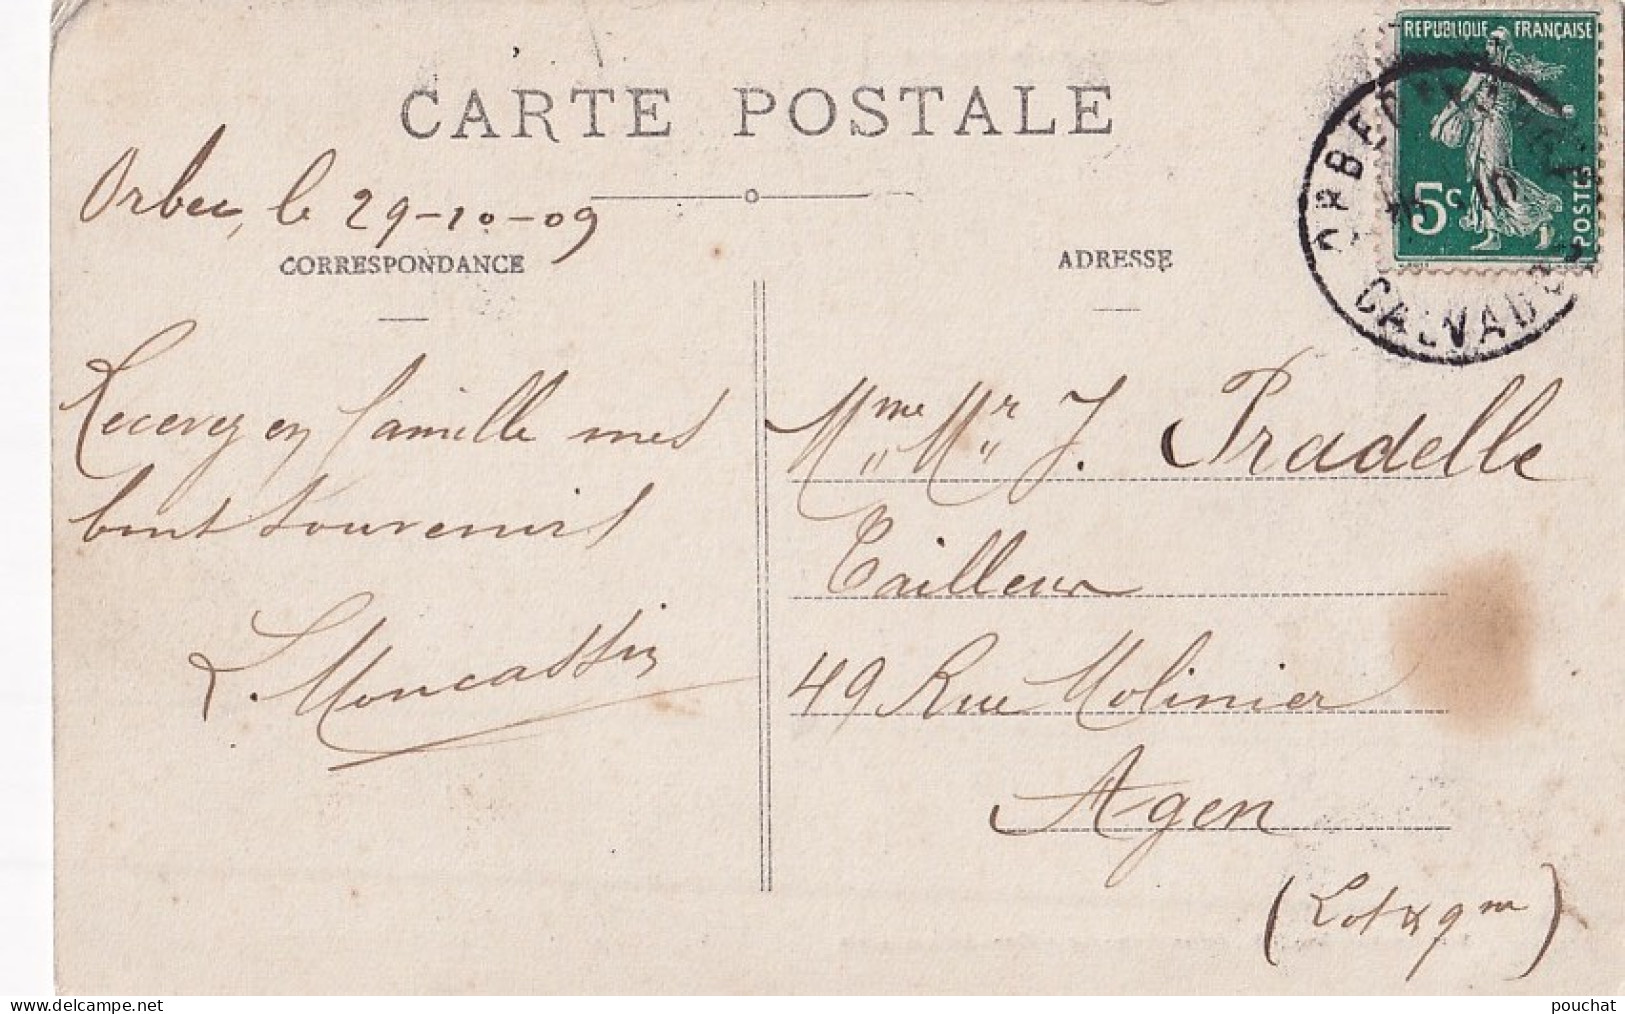 CARTE POSTALE
RÉPUBLIQUE FRANÇAISE
5c
POSTES
ORBEC EN AUGE
CALVADOS
Orbec, le 29-10-09
CORRESPONDANCE
Recevez en famille mes
bons souvenirs
L. Moncassin
ADRESSE
Mme Mr J. Pradelle
Tailleur
49 Rue Molinier
Agen
(Lot & gne)
pouchat
delcampe.net